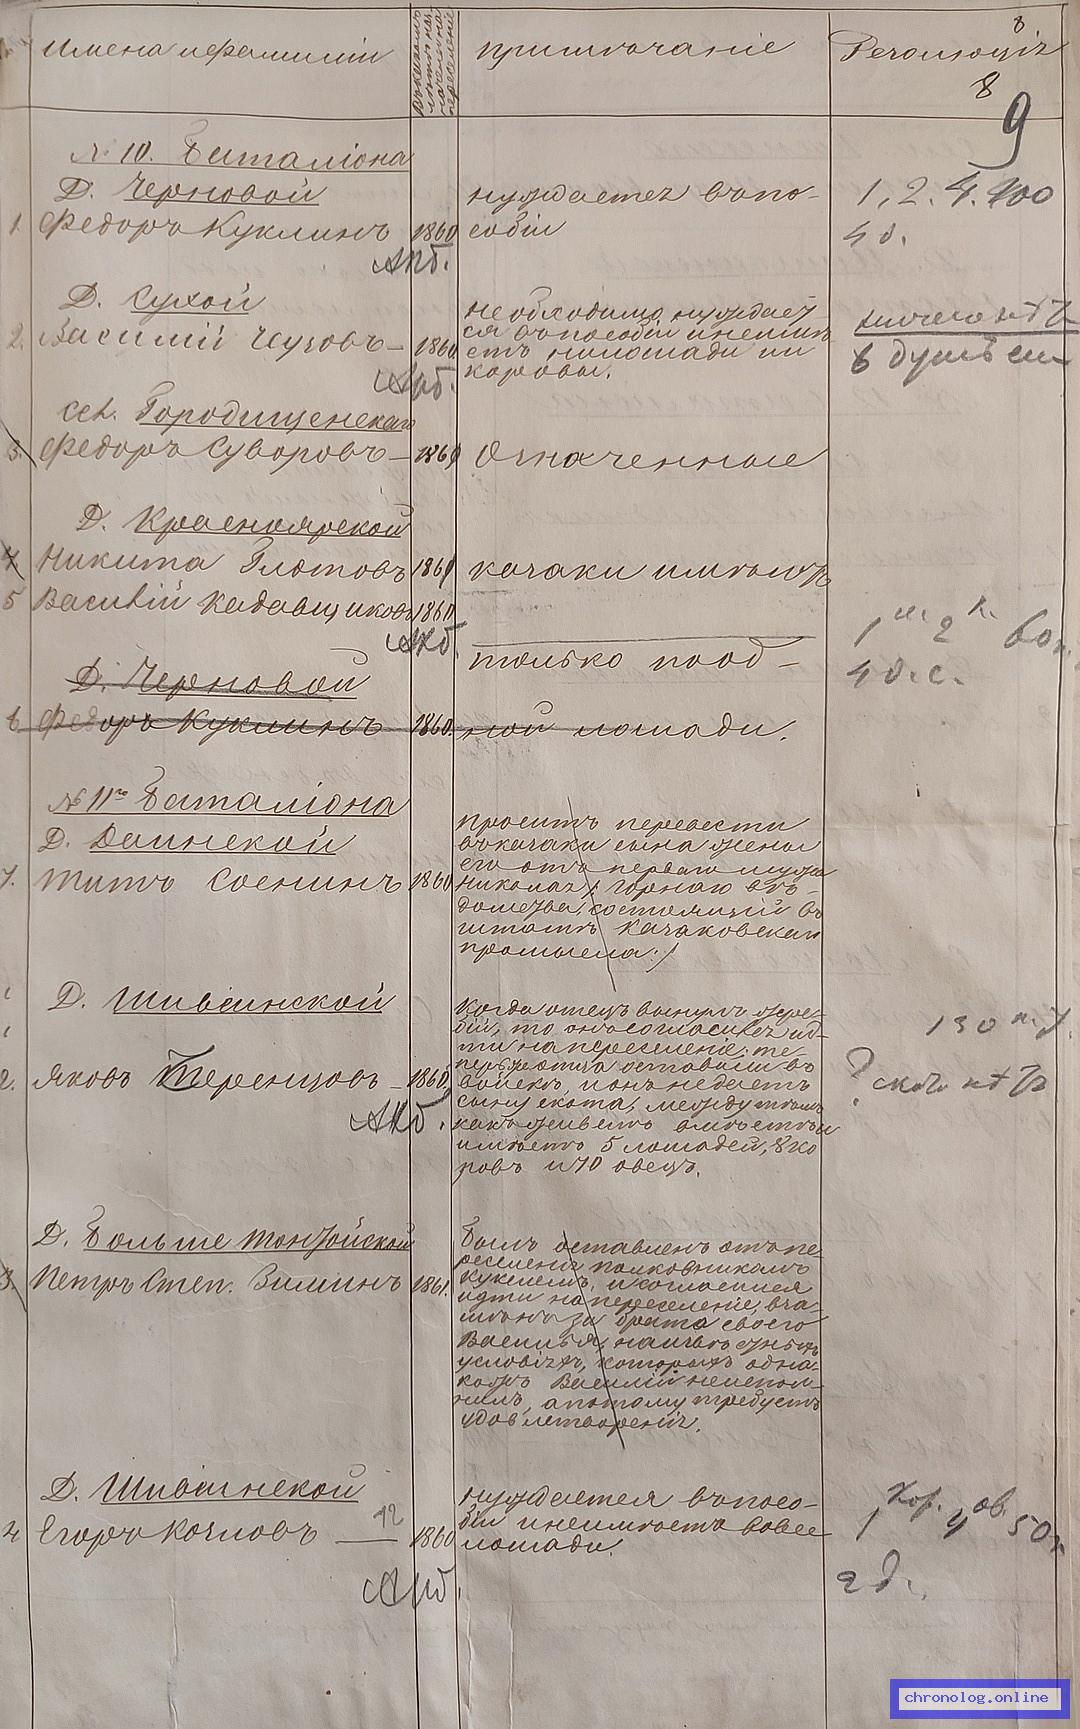 Имена и фамиліи
Въ которомъ году назначены на переселеніе
примѣчаніе
Резолюція
8
8
9
№ 10. Баталіона
Д. Черновой
1. Федоръ Куклинъ 1860
нуждается въ по-
собіи
1, 2. 4. 100
4 д.
Д. Сухой
2. Василій Чузовъ 1860
необходимо нуждает-
ся въ пособіи и неимѣ-
етъ ни лошади ни
коровы.
ничего нѣтъ
6 душъ
сел. Городищенская
3. Федоръ Суворовъ 1860
Означенные
Д. Красноярской
4 Никита Глотовъ 1860
казаки имѣютъ
5 Василій Кадавщиковъ 1860
1 2 к.
только по од-
4 д. с.
Д. Черновой
6 Федоръ Куклинъ 1860.
ной лошади.
№ 11го Баталіона
Д. Доинской
7. Титъ Соенинъ 1860
проситъ перевести
въ казаки сына жены
его отъ перваго мужа
Николая /: горнаго вѣ-
домства, состоящій въ
штатѣ Казаковскаго
промысла :/
Д. Шивіинской
2. Яковъ Теренцовъ 1860
Когда отецъ вынулъ жре-
бій, то онъ согласился ид-
ти на переселеніе; те-
перь же отца оставили въ
войскѣ, и онъ не даетъ
сыну скота, между тѣмъ
какъ жилъ вмѣстѣ и
имѣетъ 5 лошадей, 8 ко
ровъ и 70 овецъ.
130
? скота нѣтъ
Д. Больше Тонтойской
3. Петръ Степ. Зиминъ 1861.
Былъ оставленъ отъ пе-
реселенія полковникомъ
Кукелемъ, и согласился
идти на переселеніе, вза-
мѣнъ за брата своего
Василья, на извѣстныхъ
условіяхъ, которыхъ одна-
кожъ Василій неиспол-
нилъ, а потому требуетъ
удовлетворенія.
Д. Шивіинской
4 Егоръ Козловъ 12 1860
нуждается въ посо-
біи и неимѣетъ вовсе
лошади.
1 кор. 4 ов. 50
2 д.
chronolog.online